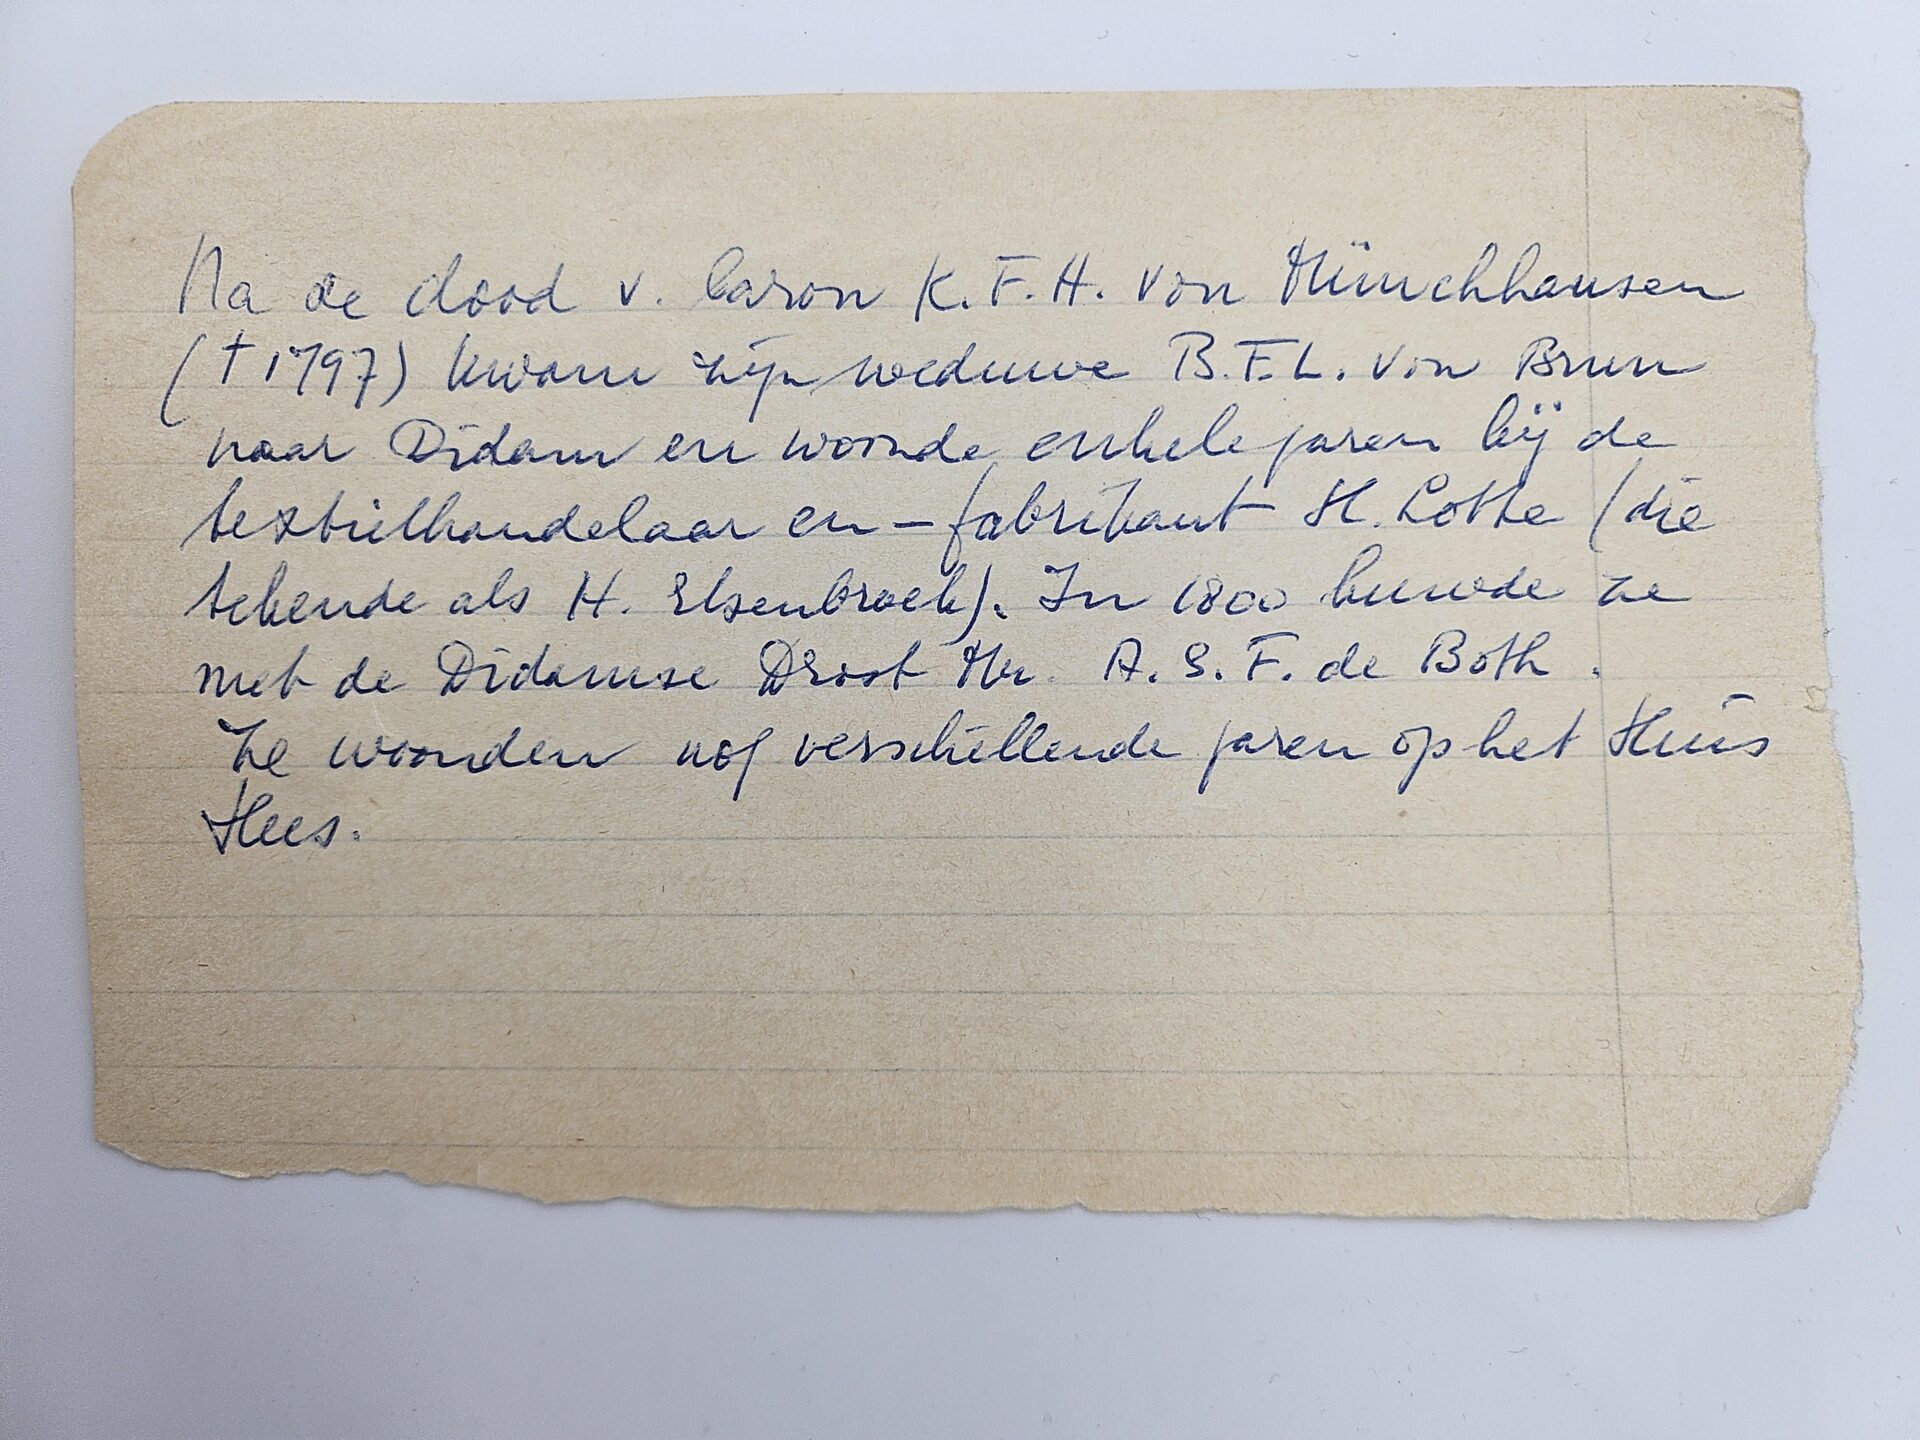 Na de dood v. baron K.F.H. von Münchhausen
(† 1797) kwam zijn weduwe B.F.L. von Brun
naar Didam en woonde enkele jaren bij de
textielhandelaar en -fabrikant H. Lotte (die
tekende als H. Elsenbroek). In 1800 huwde ze
met de Didamse Drost Mr. A.S.F. de Both.
Ze woonden nog verschillende jaren op het Huis
Hees.